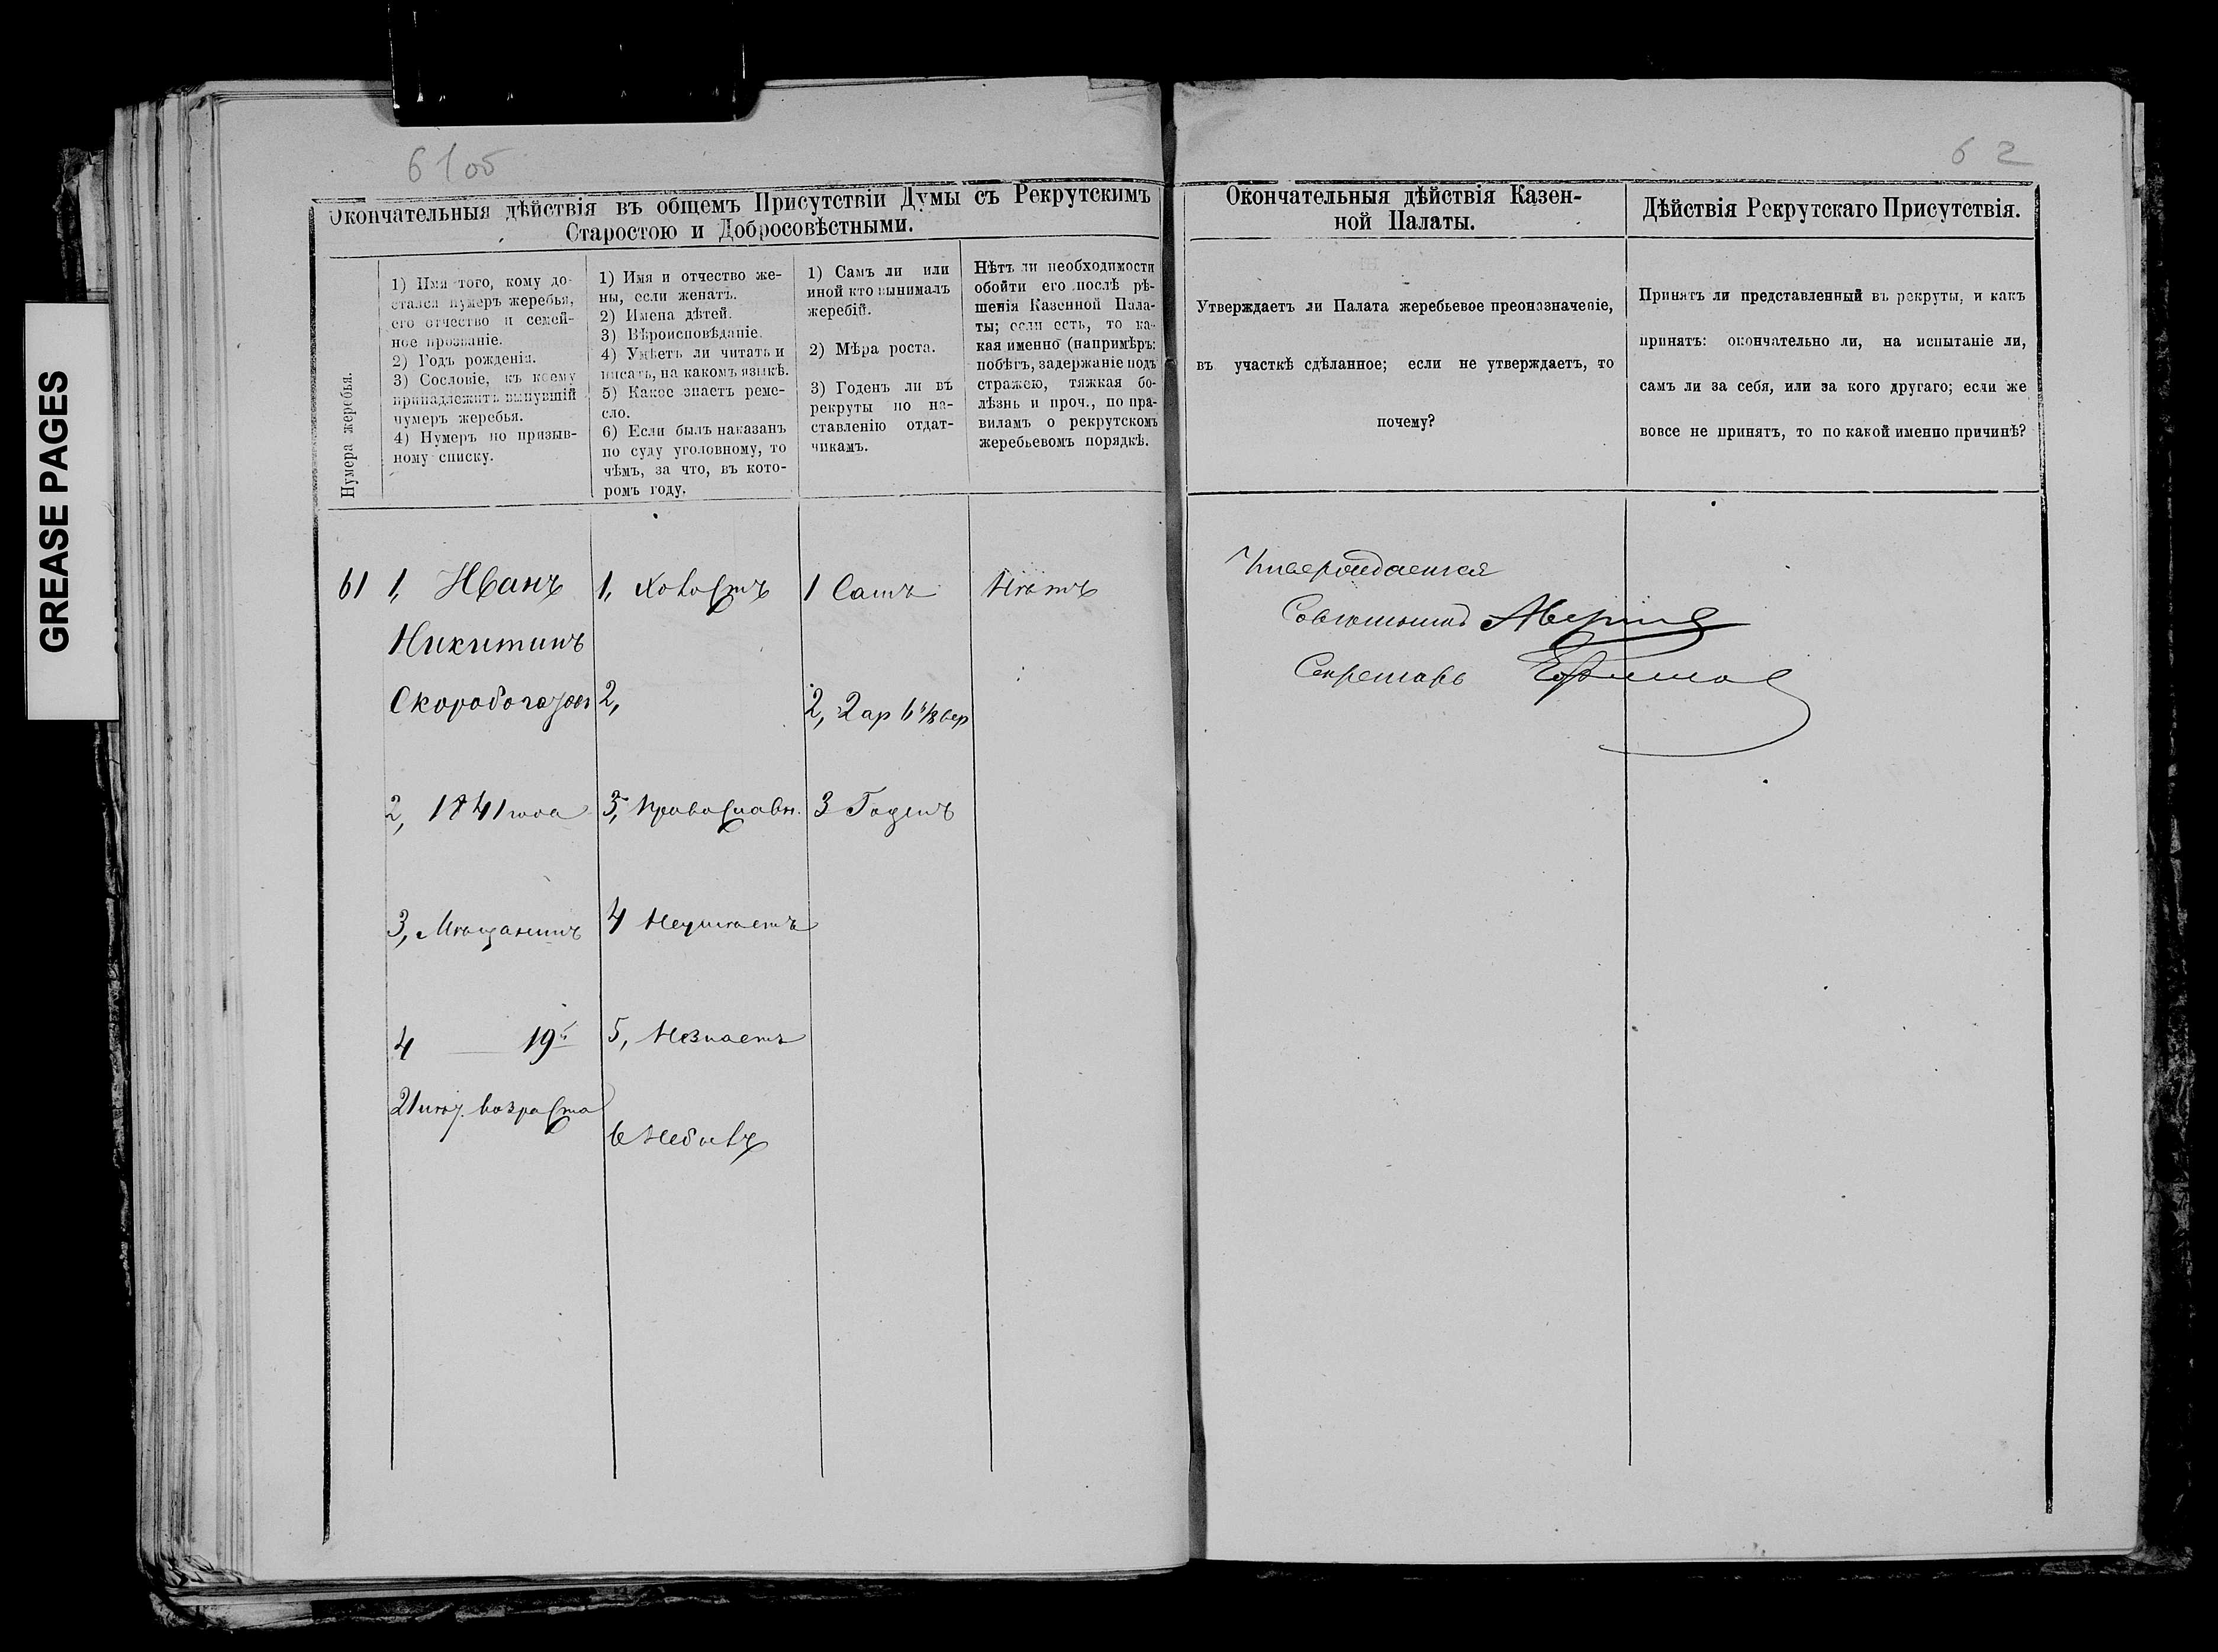 GREASE PAGES
61об
62
Окончательныя дѣйствія въ общемъ Присутствіи Думы съ Рекрутскимъ
Старостою и Добросовѣстными.
Нумера жеребья.
1) Имя того, кому до-
стался нумеръ жеребья,
его отчество и семей-
ное прозваніе.
2) Годъ рожденія.
3) Сословіе, къ коему
принадлежитъ вынувшій
нумеръ жеребья.
4) Нумеръ по призыв-
ному списку.
1) Имя и отчество же-
ны, если женатъ.
2) Имена дѣтей.
3) Вѣроисповѣданіе.
4) Умѣетъ ли читать и
писать, на какомъ языкѣ.
5) Какое знаетъ реме-
сло.
6) Если былъ наказанъ
по суду уголовному, то
чѣмъ, за что, въ кото-
ромъ году.
1) Самъ ли или
иной кто вынималъ
жеребій.
2) Мѣра роста.
3) Годенъ ли въ
рекруты по на-
ставленію отдат-
чикамъ.
Нѣтъ ли необходимости
обойти его послѣ рѣ-
шенія Казенной Пала-
ты; если есть, то ка-
кая именно (напримѣръ:
побѣгъ, задержаніе подъ
стражею, тяжкая бо-
лѣзнь и проч., по пра-
виламъ о рекрутскомъ
жеребьевомъ порядкѣ.
Окончательныя дѣйствія Казен-
ной Палаты.
Утверждаетъ ли Палата жеребьевое преоназначеніе,
въ участкѣ сдѣланное; если не утверждаетъ, то
почему?
Дѣйствія Рекрутскаго Присутствія.
Принятъ ли представленный въ рекруты, и какъ
принятъ: окончательно ли, на испытаніе ли,
самъ ли за себя, или за кого другаго; если же
вовсе не принятъ, то по какой именно причинѣ?
61
1, Иванъ
Никитинъ
Скоробогатовъ
2, 1841 года
3, Мѣщанинъ
4 — 19й
21 лѣт. возраста
1, Холостъ
2,
3, Православн.
4 Неумѣетъ
5, Незнаетъ
6 Небылъ
1 Самъ
2, 2 ар 6 1/8 вер
3 Годенъ
Нѣтъ
Утверждается
Совѣтникъ
Секретарь